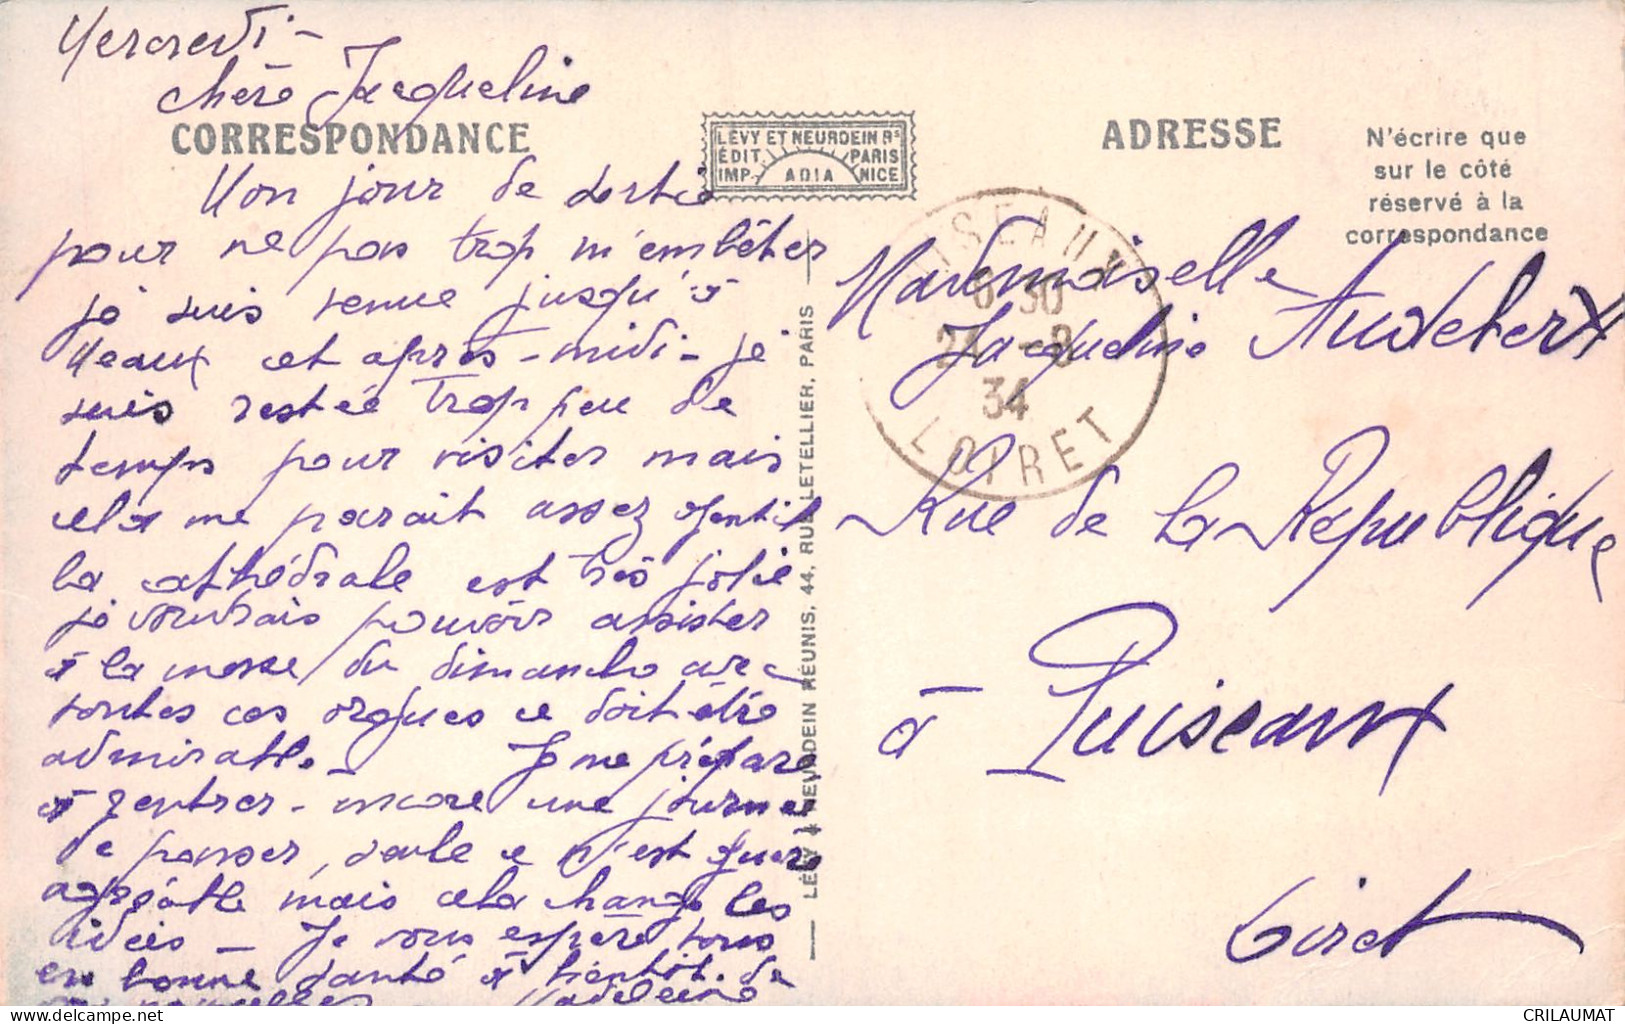 Mercredi -
Chère Jacqueline
CORRESPONDANCE
Mon jour de sortie
pour ne pas trop m'embêter
je suis venue jusqu'à
Meaux cet après-midi - je
suis restée trop peu de
temps pour visiter mais
cela me parait assez gentil
la cathédrale est très jolie
je voudrais pouvoir assister
à la messe du dimanche avec
toutes ces orgues ce doit être
admirable. - Je me prépare
à rentrer - encore une journée
de passer, seule ce n'est guère
agréable mais cela change les
idées - Je vous espère tous
en bonne santé à bientôt. de
nouvelles Madeleine
LÉVY ET NEURDEIN RS
ÉDIT. PARIS
IMP. ADIA NICE
LÉVY & NEURDEIN RÉUNIS, 44, RUE LETELLIER, PARIS
ADRESSE
N'écrire que
sur le côté
réservé à la
correspondance
PUISEAUX
6 30
-8
34
LOIRET
Mademoiselle
Jacqueline Audebert
Rue de la République
à Puiseaux
Loiret
CRILAUMAT